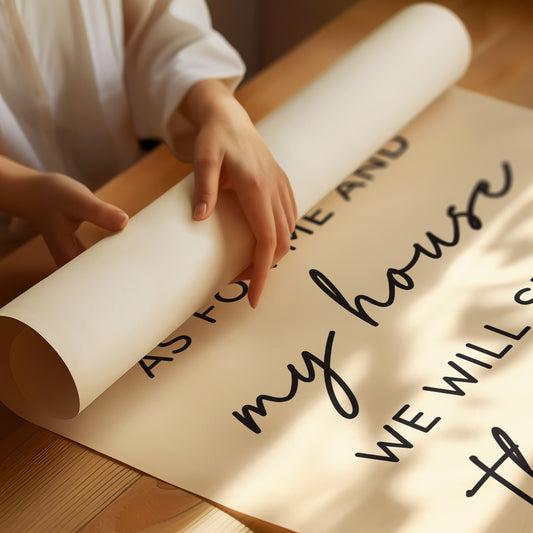 AS FOR ME AND
my house
WE WILL